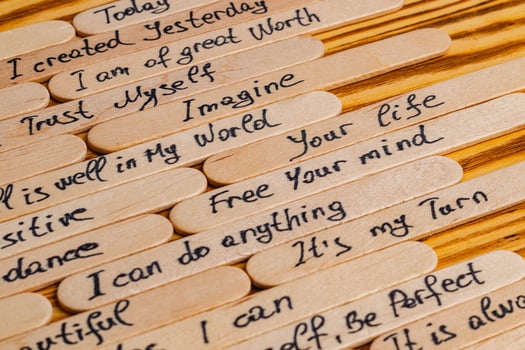 Today
I created Yesterday
I am of great Worth
Trust Myself
Imagine
ll is well in My World
Your life
sitive
Free Your mind
dance
I can do anything
It's my Turn
autiful
I can
elf, Be Perfect
It is alwa